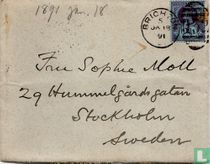 1891 Jan. 18
BRIGH
JA 18
91
Fru Sophie Moll
29 Hummelgårdsgatan
Stockholm
Sweden